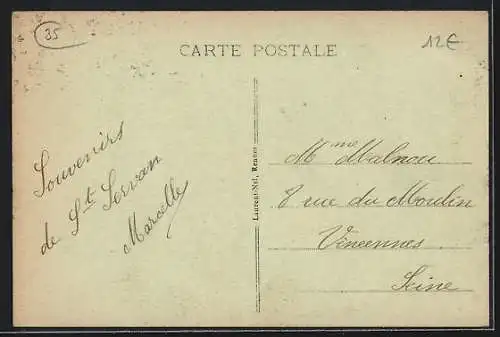 35
12€
CARTE POSTALE
Souvenirs
de St Servan
Marcelle
Laurent-Nel, Rennes
Mme Malnou
8 rue du Moulin
Vincennes
Seine